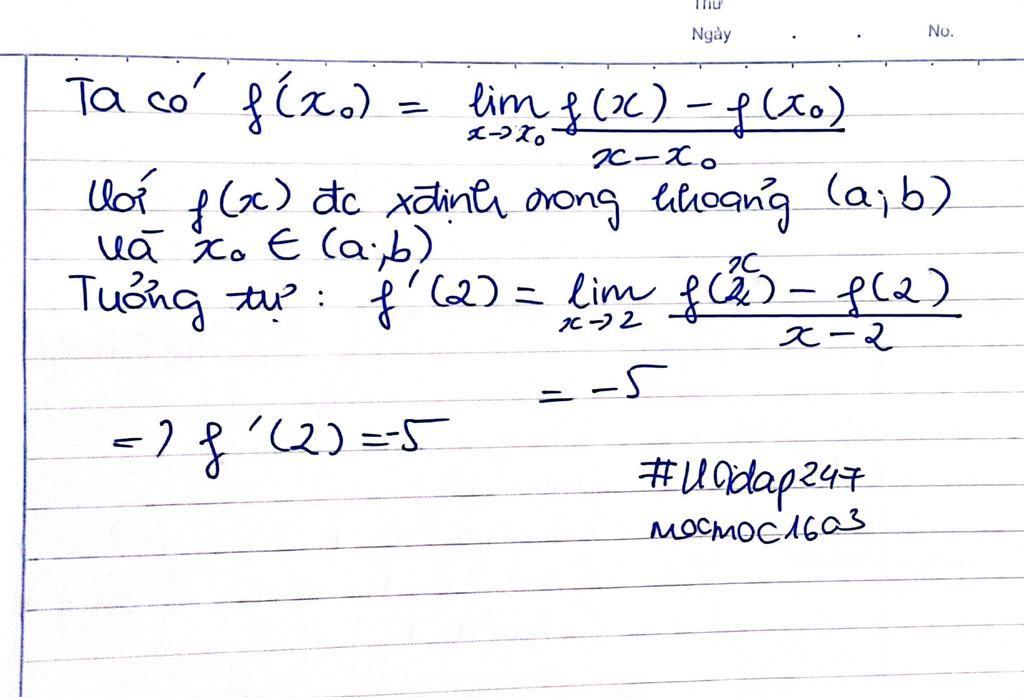 Thứ
Ngày . . No.
Ta có f'(x₀) = lim x→x₀ f(x) - f(x₀) / x - x₀
Với f(x) đc xđịnh trong khoảng (a;b)
và x₀ ∈ (a;b)
Tưởng tự : f'(2) = lim x→2 f(x) - f(2) / x - 2
= -5
=> f'(2) = -5
#Hoidap247
mocmoc16a3